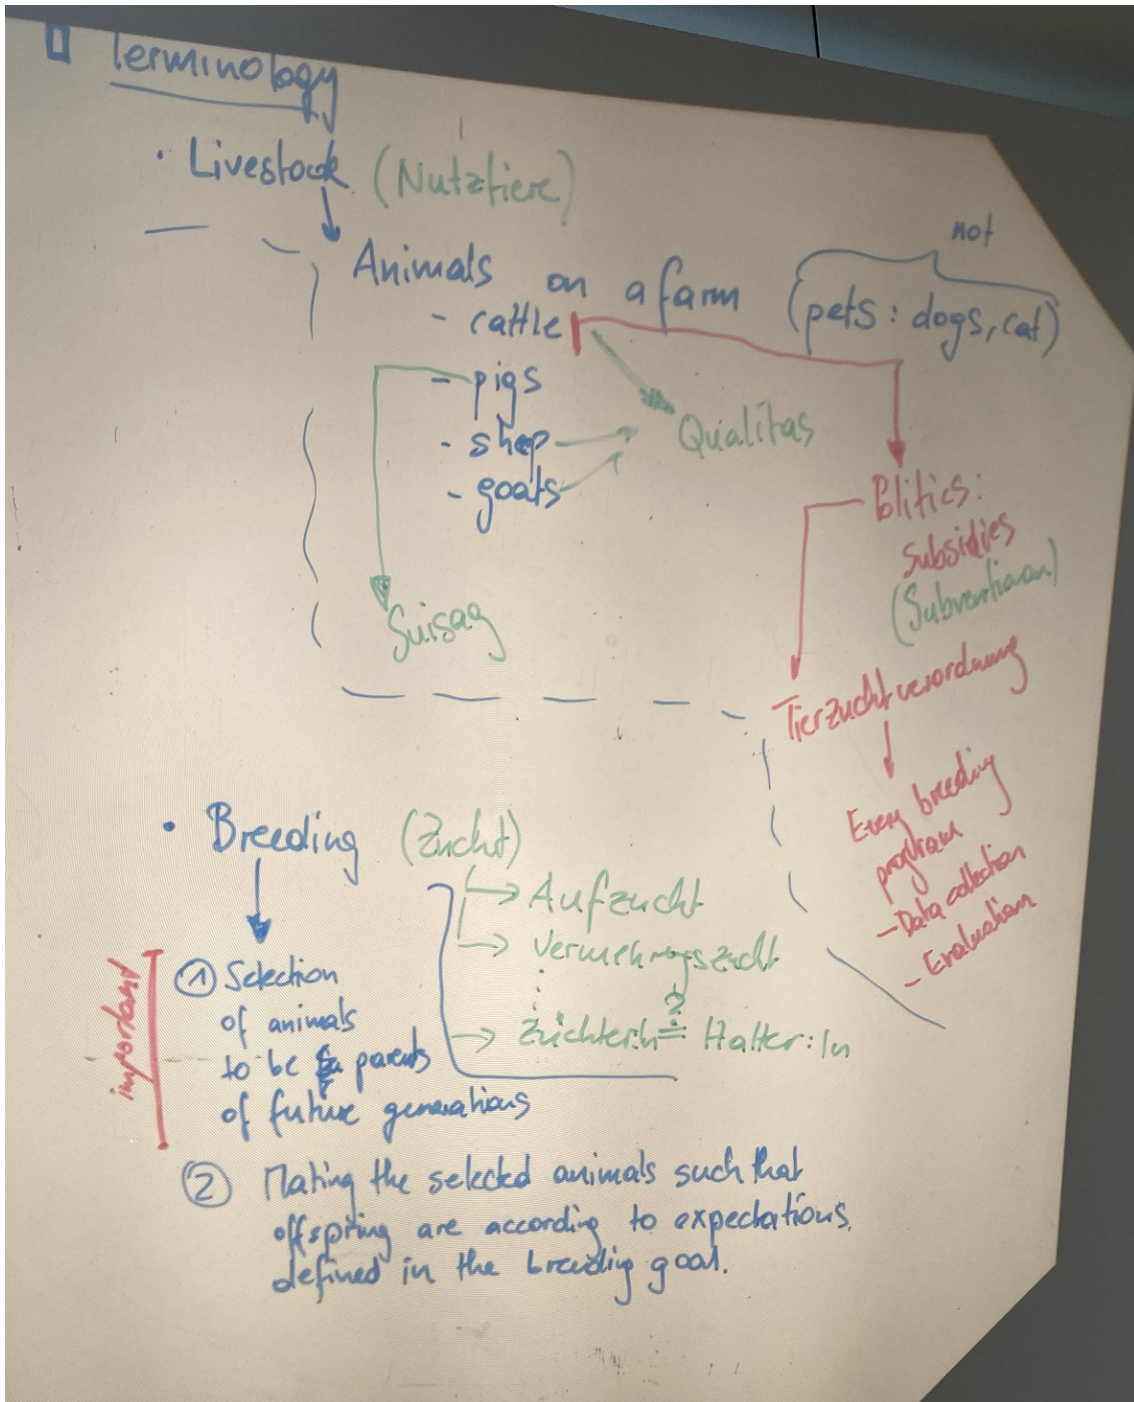 Terminology
· Livestock (Nutztiere)
not
Animals on a farm (pets: dogs, cat)
- cattle
- pigs
- shep
- goats
Qualitas
Politics:
subsidies
(Subventionen)
Suisag
Tierzuchtverordnung
Every breeding
program
- Data collection
- Evaluation
· Breeding (Zucht)
Aufzucht
Vermehrungszucht
?
Züchter:In = Halter:In
important
① Selection
of animals
to be parents
of future generations
② Mating the selected animals such that
offspring are according to expectations,
defined in the breeding goal.